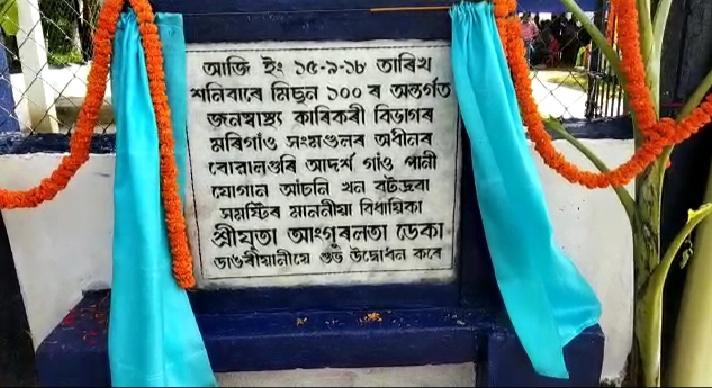 আজি ইং ১৫-৯-১৮ তাৰিখ
শনিবাৰে মিছন ১০০ ৰ অন্তৰ্গত
জনস্বাস্থ্য কাৰিকৰী বিভাগৰ
মৰিগাঁও সংমণ্ডলৰ অধীনৰ
বোৱালগুৰি আদৰ্শ গাঁও পানী
যোগান আঁচনি খন বটদ্ৰবা
সমষ্টিৰ মাননীয়া বিধায়িকা
শ্ৰীযুতা আংগুৰলতা ডেকা
ডাঙৰীয়ানীয়ে শুভ উদ্বোধন কৰে